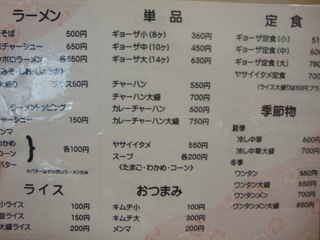 ラーメン
そば 500円
チャーシュー 650円
ポロラーメン 各550円
みそ・しお・しょうゆ
大盛り プラス50円
ラーメントッピング
チャーシュー 150円
メンマ
わかめ
コーン
バター
各100円
※バターはサッポロラーメンのみ
ライス
小ライス 100円
ライス 150円
大ライス 200円
単品
ギョーザ小(8ヶ) 360円
ギョーザ中(10ヶ) 450円
ギョーザ大(14ヶ) 630円
チャーハン 550円
チャーハン大盛 700円
カレーチャーハン 600円
カレーチャーハン大盛 750円
ヤサイイタメ 550円
スープ 各200円
<たまご・わかめ・コーン>
おつまみ
キムチ小 100円
キムチ大 300円
メンマ 200円
定食
ギョーザ定食(小) 51
ギョーザ定食(中) 600
ギョーザ定食(大) 780
ヤサイイタメ定食 700
(ライス大盛りは50円プラス
季節物
夏季
冷し中華 600円
冷し中華大盛 700円
冬季
ワンタン 550円
ワンタン大盛 650円
ワンタンメン 700円
ワンタンメン大盛 800円